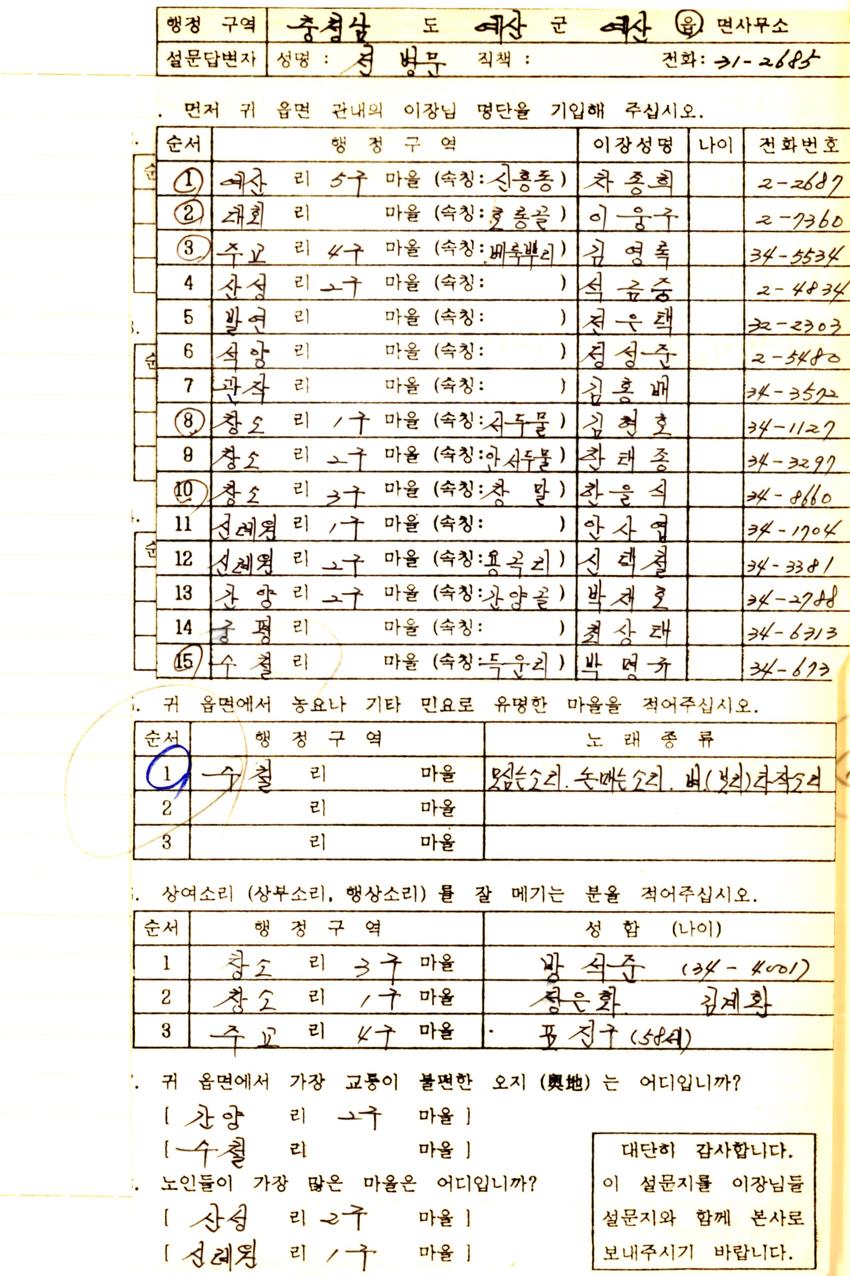 행정 구역 충청남 도 예산 군 예산 읍. 면사무소
설문답변자 성명 : 전병문 직책 : 전화: 31-2685
. 먼저 귀 읍면 관내의 이장님 명단을 기입해 주십시오.
순서 행 정 구 역 이장성명 나이 전화번호
1 예산 리 5구 마을 (속칭:신흥동) 차종희 2-2687
2 대회 리 마을 (속칭:호롱골) 이웅구 2-7360
3 주교 리 4구 마을 (속칭:배룩뿌리) 김영록 34-5534
4 산성 리 2구 마을 (속칭: ) 석금중 2-4834
5 발연 리 마을 (속칭: ) 전운택 32-2303
6 석양 리 마을 (속칭: ) 정성준 2-5480
7 관작 리 마을 (속칭: ) 김홍배 34-3572
8 창소 리 1구 마을 (속칭:서두물) 김현호 34-1127
9 창소 리 2구 마을 (속칭:안서두물) 한태종 34-3297
10 창소 리 3구 마을 (속칭:창말) 한을석 34-8660
11 신례원 리 1구 마을 (속칭: ) 안사엽 34-1704
12 신례원 리 2구 마을 (속칭:용곡리) 신택철 34-3381
13 간양 리 2구 마을 (속칭:간양골) 박제호 34-2788
14 궁평 리 마을 (속칭: ) 최상태 34-6313
15 수철 리 마을 (속칭:두운리) 박명규 34-673
. 귀 읍면에서 농요나 기타 민요로 유명한 마을을 적어주십시오.
순서 행 정 구 역 노 래 종 류
1 수철 리 마을 모심는소리. 논매는소리. 벼(보리)타작소리
2 리 마을
3 리 마을
. 상여소리 (상부소리, 행상소리) 를 잘 메기는 분을 적어주십시오.
순서 행 정 구 역 성 함 (나이)
1 창소 리 3구 마을 방석준 (34-4001)
2 창소 리 1구 마을 성은화 김계환
3 주교 리 4구 마을 표진구 (58세)
. 귀 읍면에서 가장 교통이 불편한 오지 (奥地) 는 어디입니까?
[ 간양 리 2구 마을 ]
[ 수철 리 마을 ]
. 노인들이 가장 많은 마을은 어디입니까?
[ 산성 리 2구 마을 ]
[ 신례원 리 1구 마을 ]
대단히 감사합니다.
이 설문지를 이장님들
설문지와 함께 본사로
보내주시기 바랍니다.